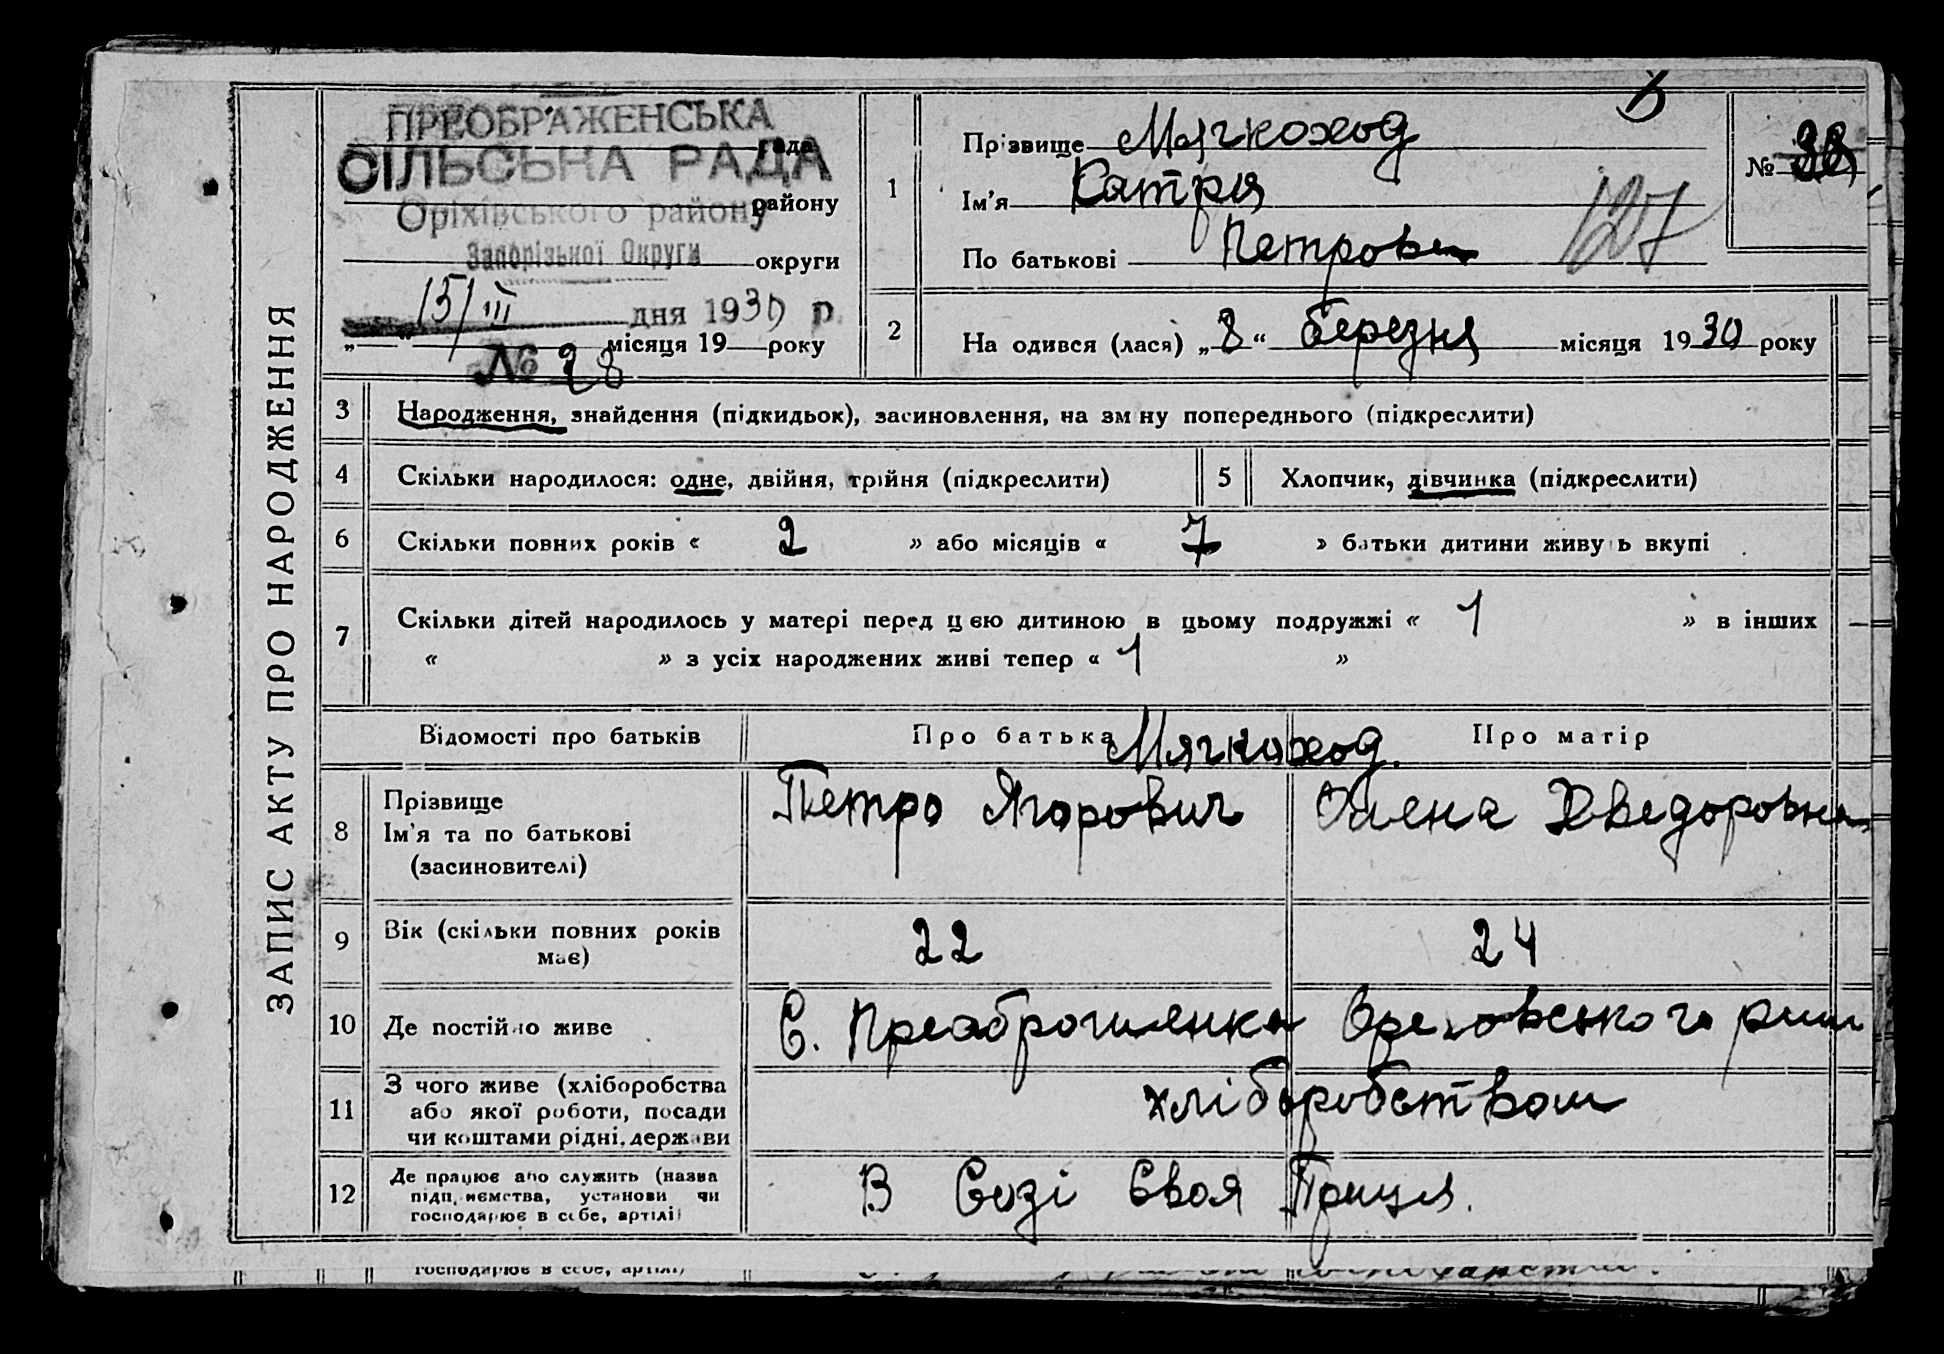 ЗАПИС АКТУ ПРО НАРОДЖЕННЯ
ПРЕОБРАЖЕНСЬКА
рада
СІЛЬСЬКА РАДА
району
Оріхівського району
Запорізької Округи
округи
15/III дня 1930 р.
„ “ місяця 19 року
№ 28
1
Прізвище Мягкоход
Ім'я Катря
По батькові Петровн
№ 28
127
2
На одився (лася) „8“ березня місяця 1930 року
3 Народження, знайдення (підкидьок), засиновлення, на зм ну попереднього (підкреслити)
4 Скільки народилося: одне, двійня, трійня (підкреслити)
5 Хлопчик, дівчинка (підкреслити)
6 Скільки повних років « 2 » або місяців « 7 » батьки дитини живу ь вкупі
7 Скільки дітей народилось у матері перед цею дитиною в цьому подружжі « 1 » в інших
« » з усіх народжених живі тепер « 1 »
Відомості про батьків Про батька Про матір
Мягкоход.
8 Прізвище
Ім'я та по батькові
(засиновителі)
Петро Ягорович Олена Хведоровна
9 Вік (скільки повних років
має)
22 24
10 Де постійно живе С. Преображенка Ореховського
11 З чого живе (хліборобства
або якої роботи, посади
чи коштами рідні, держави
хліборобством
12 Де працює або служить (назва
підп,иємства, установи чи
господарює в себе, артілі)
В Созі Своя Праця.
господарює в себе, артілі)